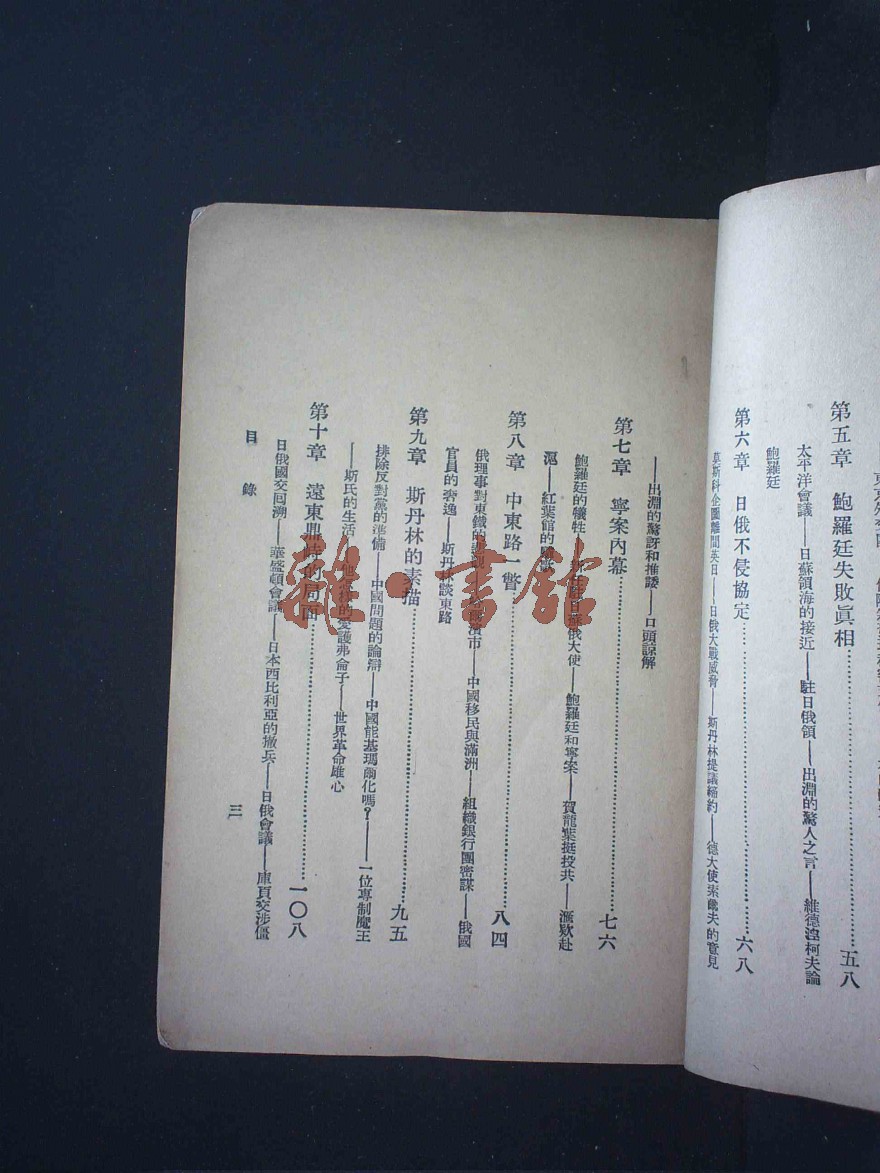 第五章 鮑羅廷失敗眞相……五八
太平洋會議——日蘇領海的接近——駐日俄領——出淵的驚人之言——維德湼柯夫論
鮑羅廷
第六章 日俄不侵協定……六八
莫斯科企圖離間英日——日俄大戰威脅——斯丹林提議締約——德大使索爾夫的意見
——出淵的驚訝和推諉——口頭諒解
第七章 寧案內幕……七六
鮑羅廷的犧牲——任駐日蘇俄大使——鮑羅廷和寧案——賀龍葉挺投共——漸欵赴
滬——紅葉館的
第八章 中東路一瞥……八四
俄理事對東鐵的——濱市——中國移民與滿洲——組織銀行團密謀——俄國
官員的奢逸——斯丹林談東路
第九章 斯丹林的素描……九五
排除反對黨的準備——中國問題的論辯——中國能基瑪爾化嗎?——一位專制魔王
——斯氏的生活——怎樣的愛護弗侖子——世界革命雄心
第十章 遠東鼎峙的局面……一〇八
日俄國交回溯——華盛頓會議——日本西比利亞的撤兵——日俄會議——庫頁交涉僵
目錄
三
雜·書館